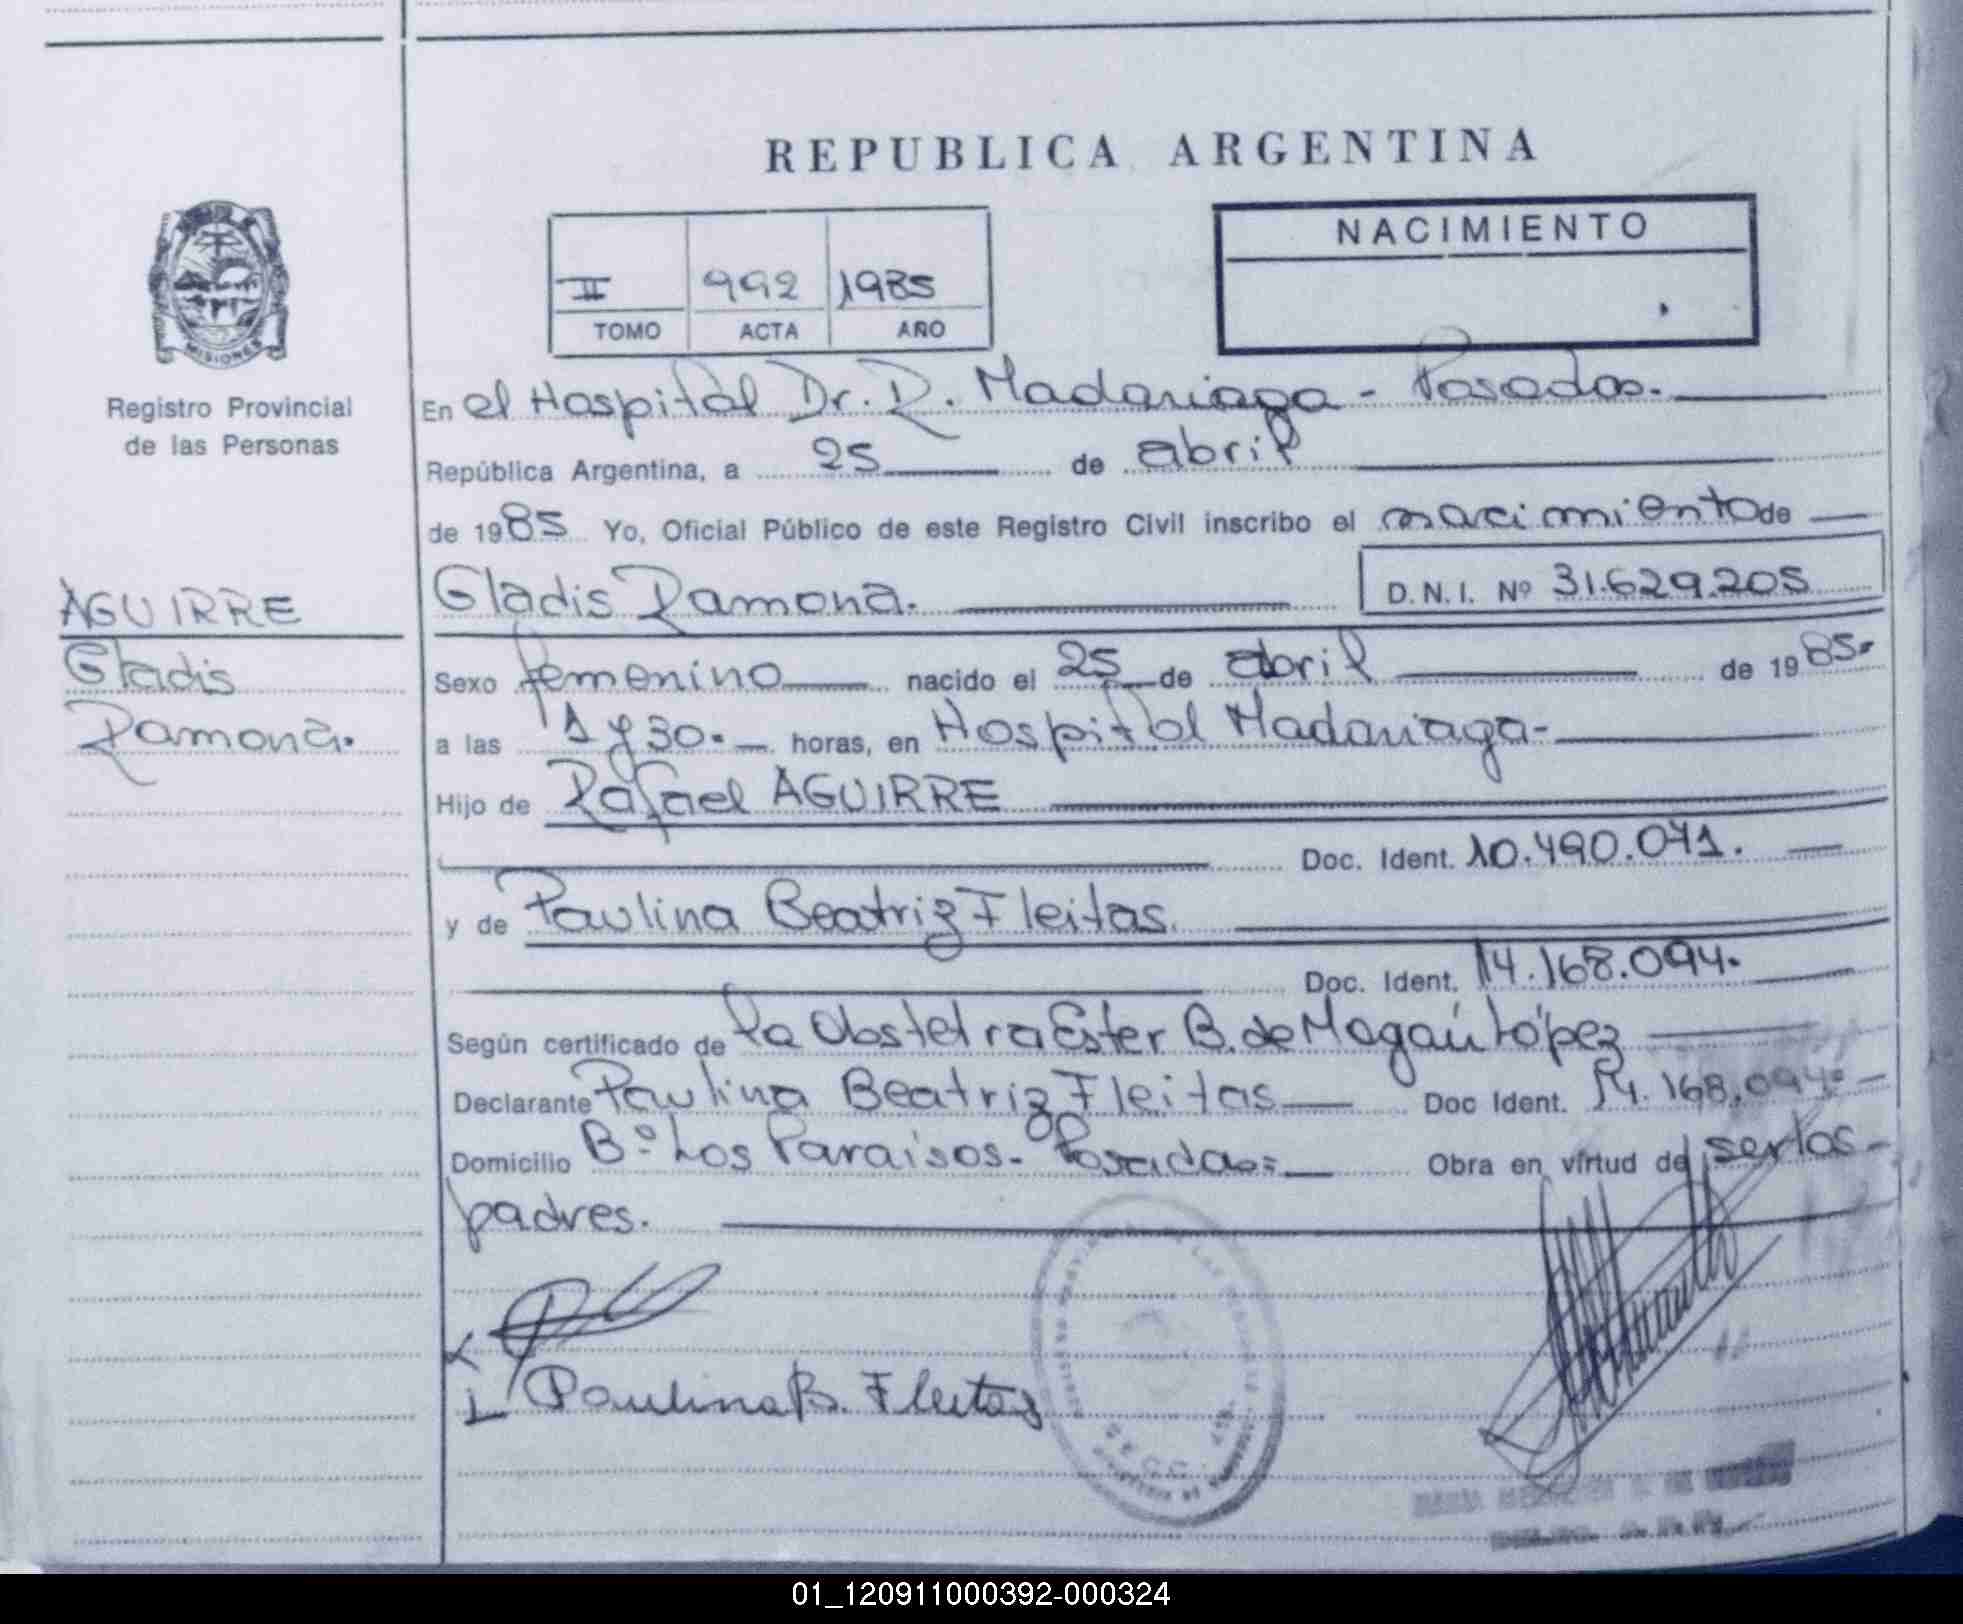 REPUBLICA ARGENTINA
NACIMIENTO
II 992 1985
TOMO ACTA AÑO
MISIONES
Registro Provincial
de las Personas
En el Hospital Dr. R. Madariaga - Posadas.
República Argentina, a 25 de abril
de 1985 Yo, Oficial Público de este Registro Civil inscribo el nacimiento de
AGUIRRE
Gladis
Ramona.
Gladis Ramona. D.N.I. Nº 31.629.205
Sexo femenino nacido el 25 de abril de 1985.
a las 1 y 30. horas, en Hospital Madariaga-
Hijo de Rafael AGUIRRE
Doc. Ident. 10.490.071.
y de Paulina Beatriz Fleitas.
Doc. Ident. 14.168.094.
Según certificado de la Obstetra Ester B. de Magaú López
Declarante Paulina Beatriz Fleitas Doc Ident. 14.168.094.
Domicilio Bº Los Paraisos - Posadas Obra en virtud de ser los
padres.
Paulina B. Fleitas
01_120911000392-000324